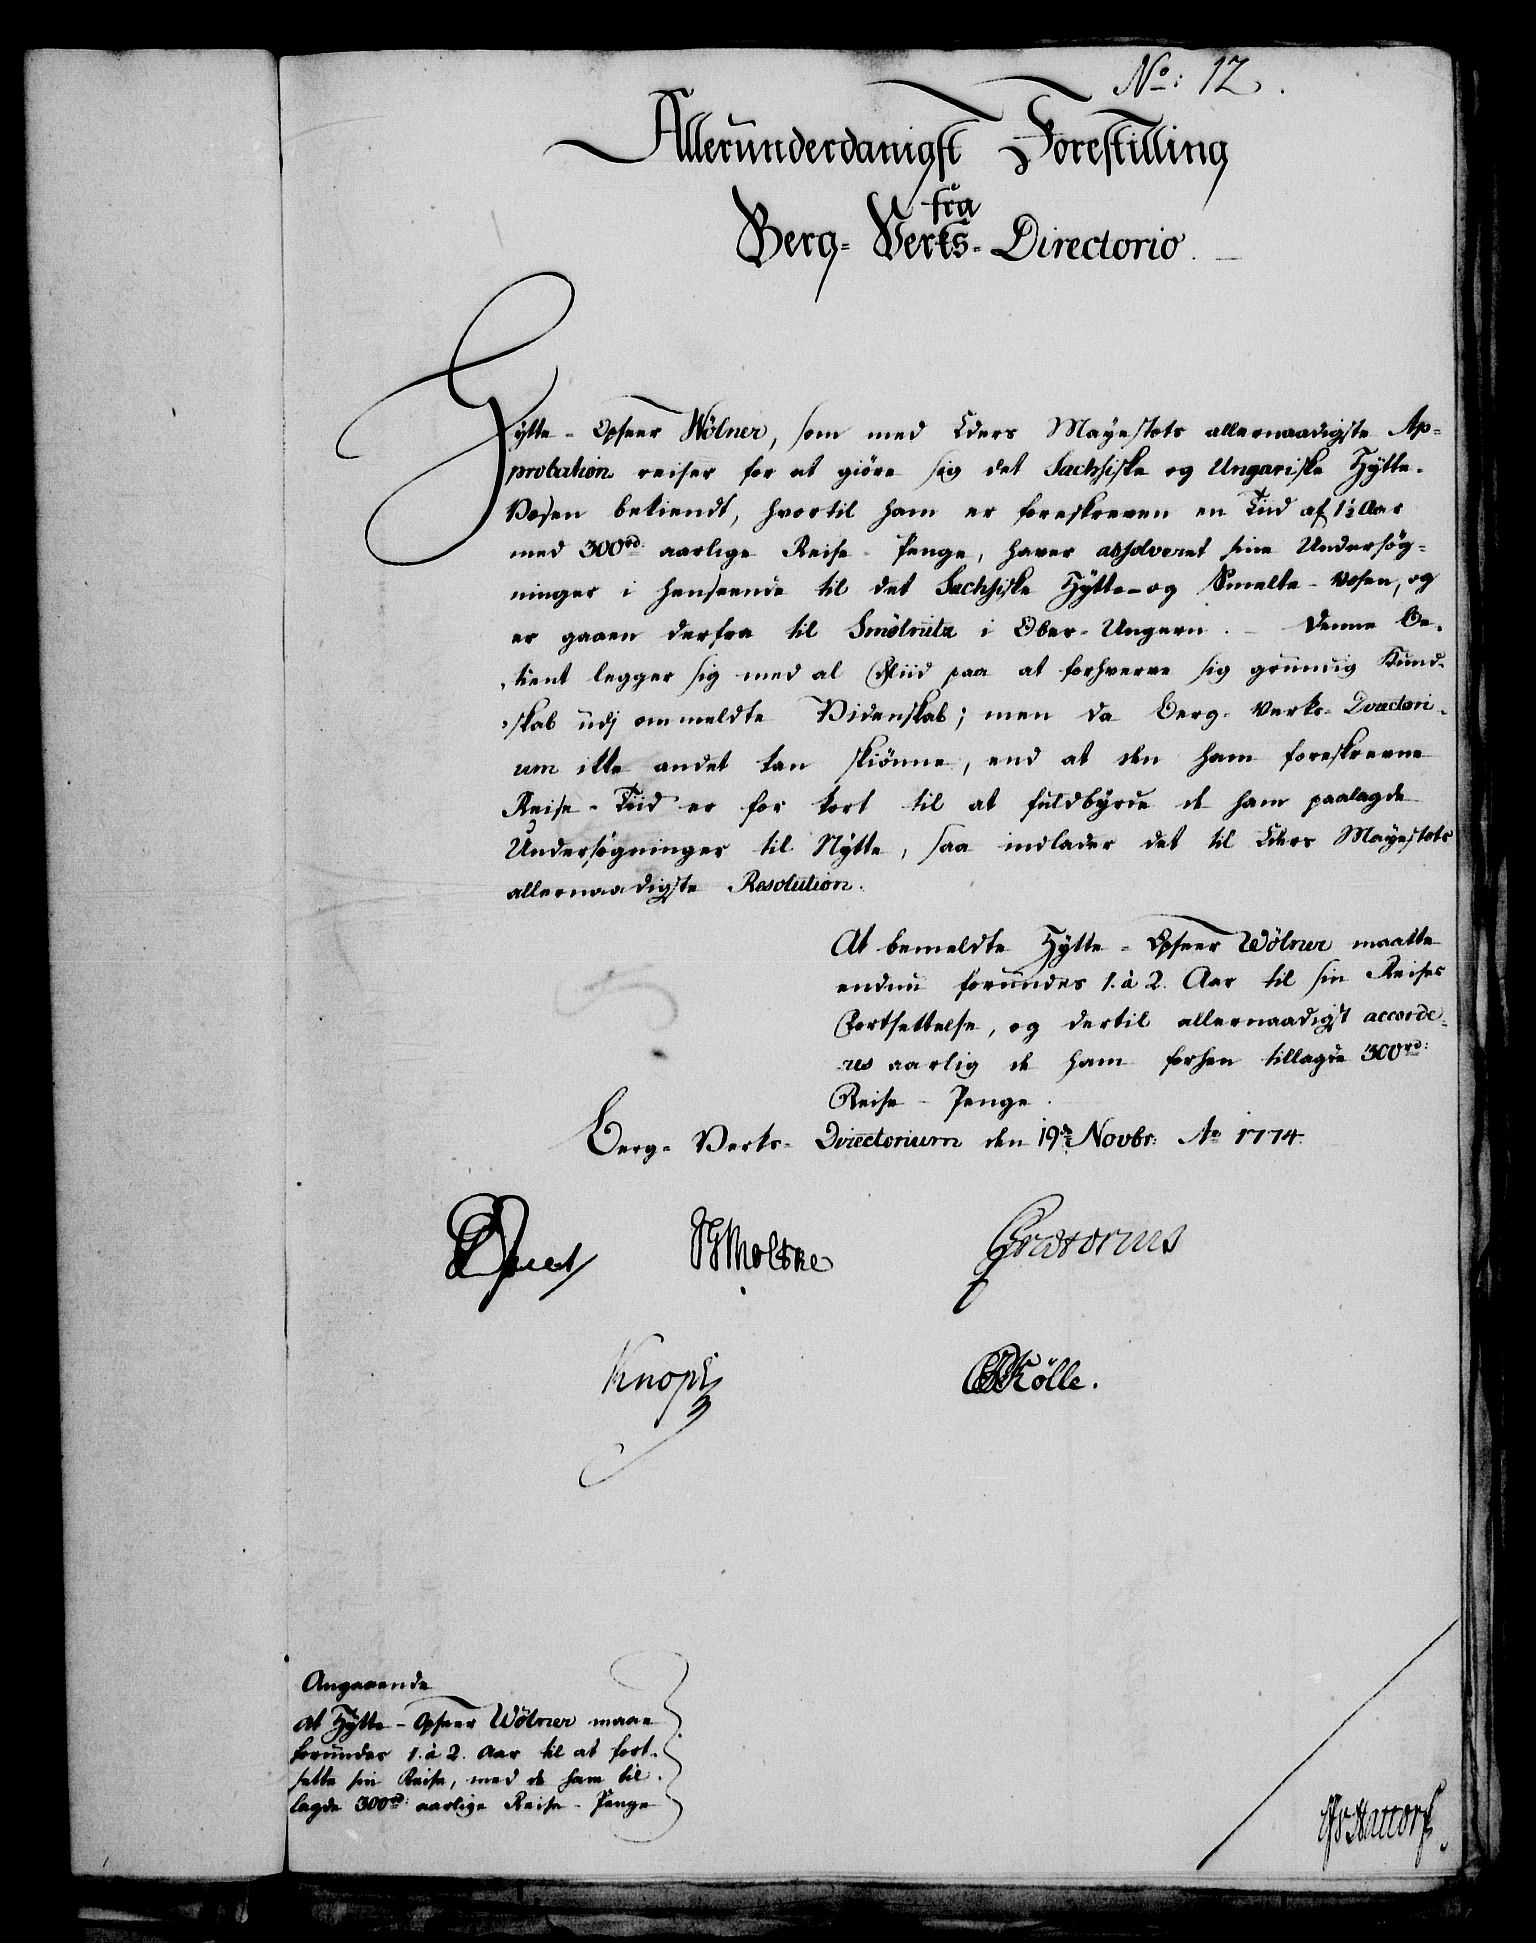 No: 12.
Allerunderdanigst Forestilling
fra
Berg- Verks- Directorio.
Hytte-Opseer Wölner, som med Eders Mayestets allernaadigste Ap-
probation reiser for at giöre sig det Sachsiske og Ungariske Hytte-
Vesen bekiendt, hvortil ham er foreskreven en Tiid af 1½ Aar
med 300rd: aarlige Reise-Penge, haver absolveret sine Undersög-
ninger i henseende til det Sachsiske Hytte- og Smelte-Vesen, og
er gaaen derfra til Smölnitz i Ober-Ungern. - Denne Be-
tient legger sig med al Fliid paa at forhverve sig grundig Kund-
skab udj ommeldte Videnskab; men da Berg-Verks-Directori-
um ikke andet kan skiönne, end at den ham foreskrevne
Reise-Tiid er for kort til at fuldbyrde de ham paalagde
Undersögninger til Nytte, saa indlader det til Eders Mayestets
allernaadigste Resolution.
At bemeldte Hytte-Opseer Wölner maatte
endnu forundes 1. à 2. Aar til sin Reises
Fortsettelse, og dertil allernaadigst accorde-
res aarlig de ham forhen tillagde 300rd:
Reise-Penge.
Berg-Verks-Directorium den 19de Novbr: Ao 1774.
Moltke
Prætorius
Knoph
Kölle.
Angaaende
at Hytte-Opseer Wölner maae
forundes 1. à 2. Aar til at fort-
sette sin Reise, med de ham til-
lagde 300rd: aarlige Reise-Penge
Hattorf